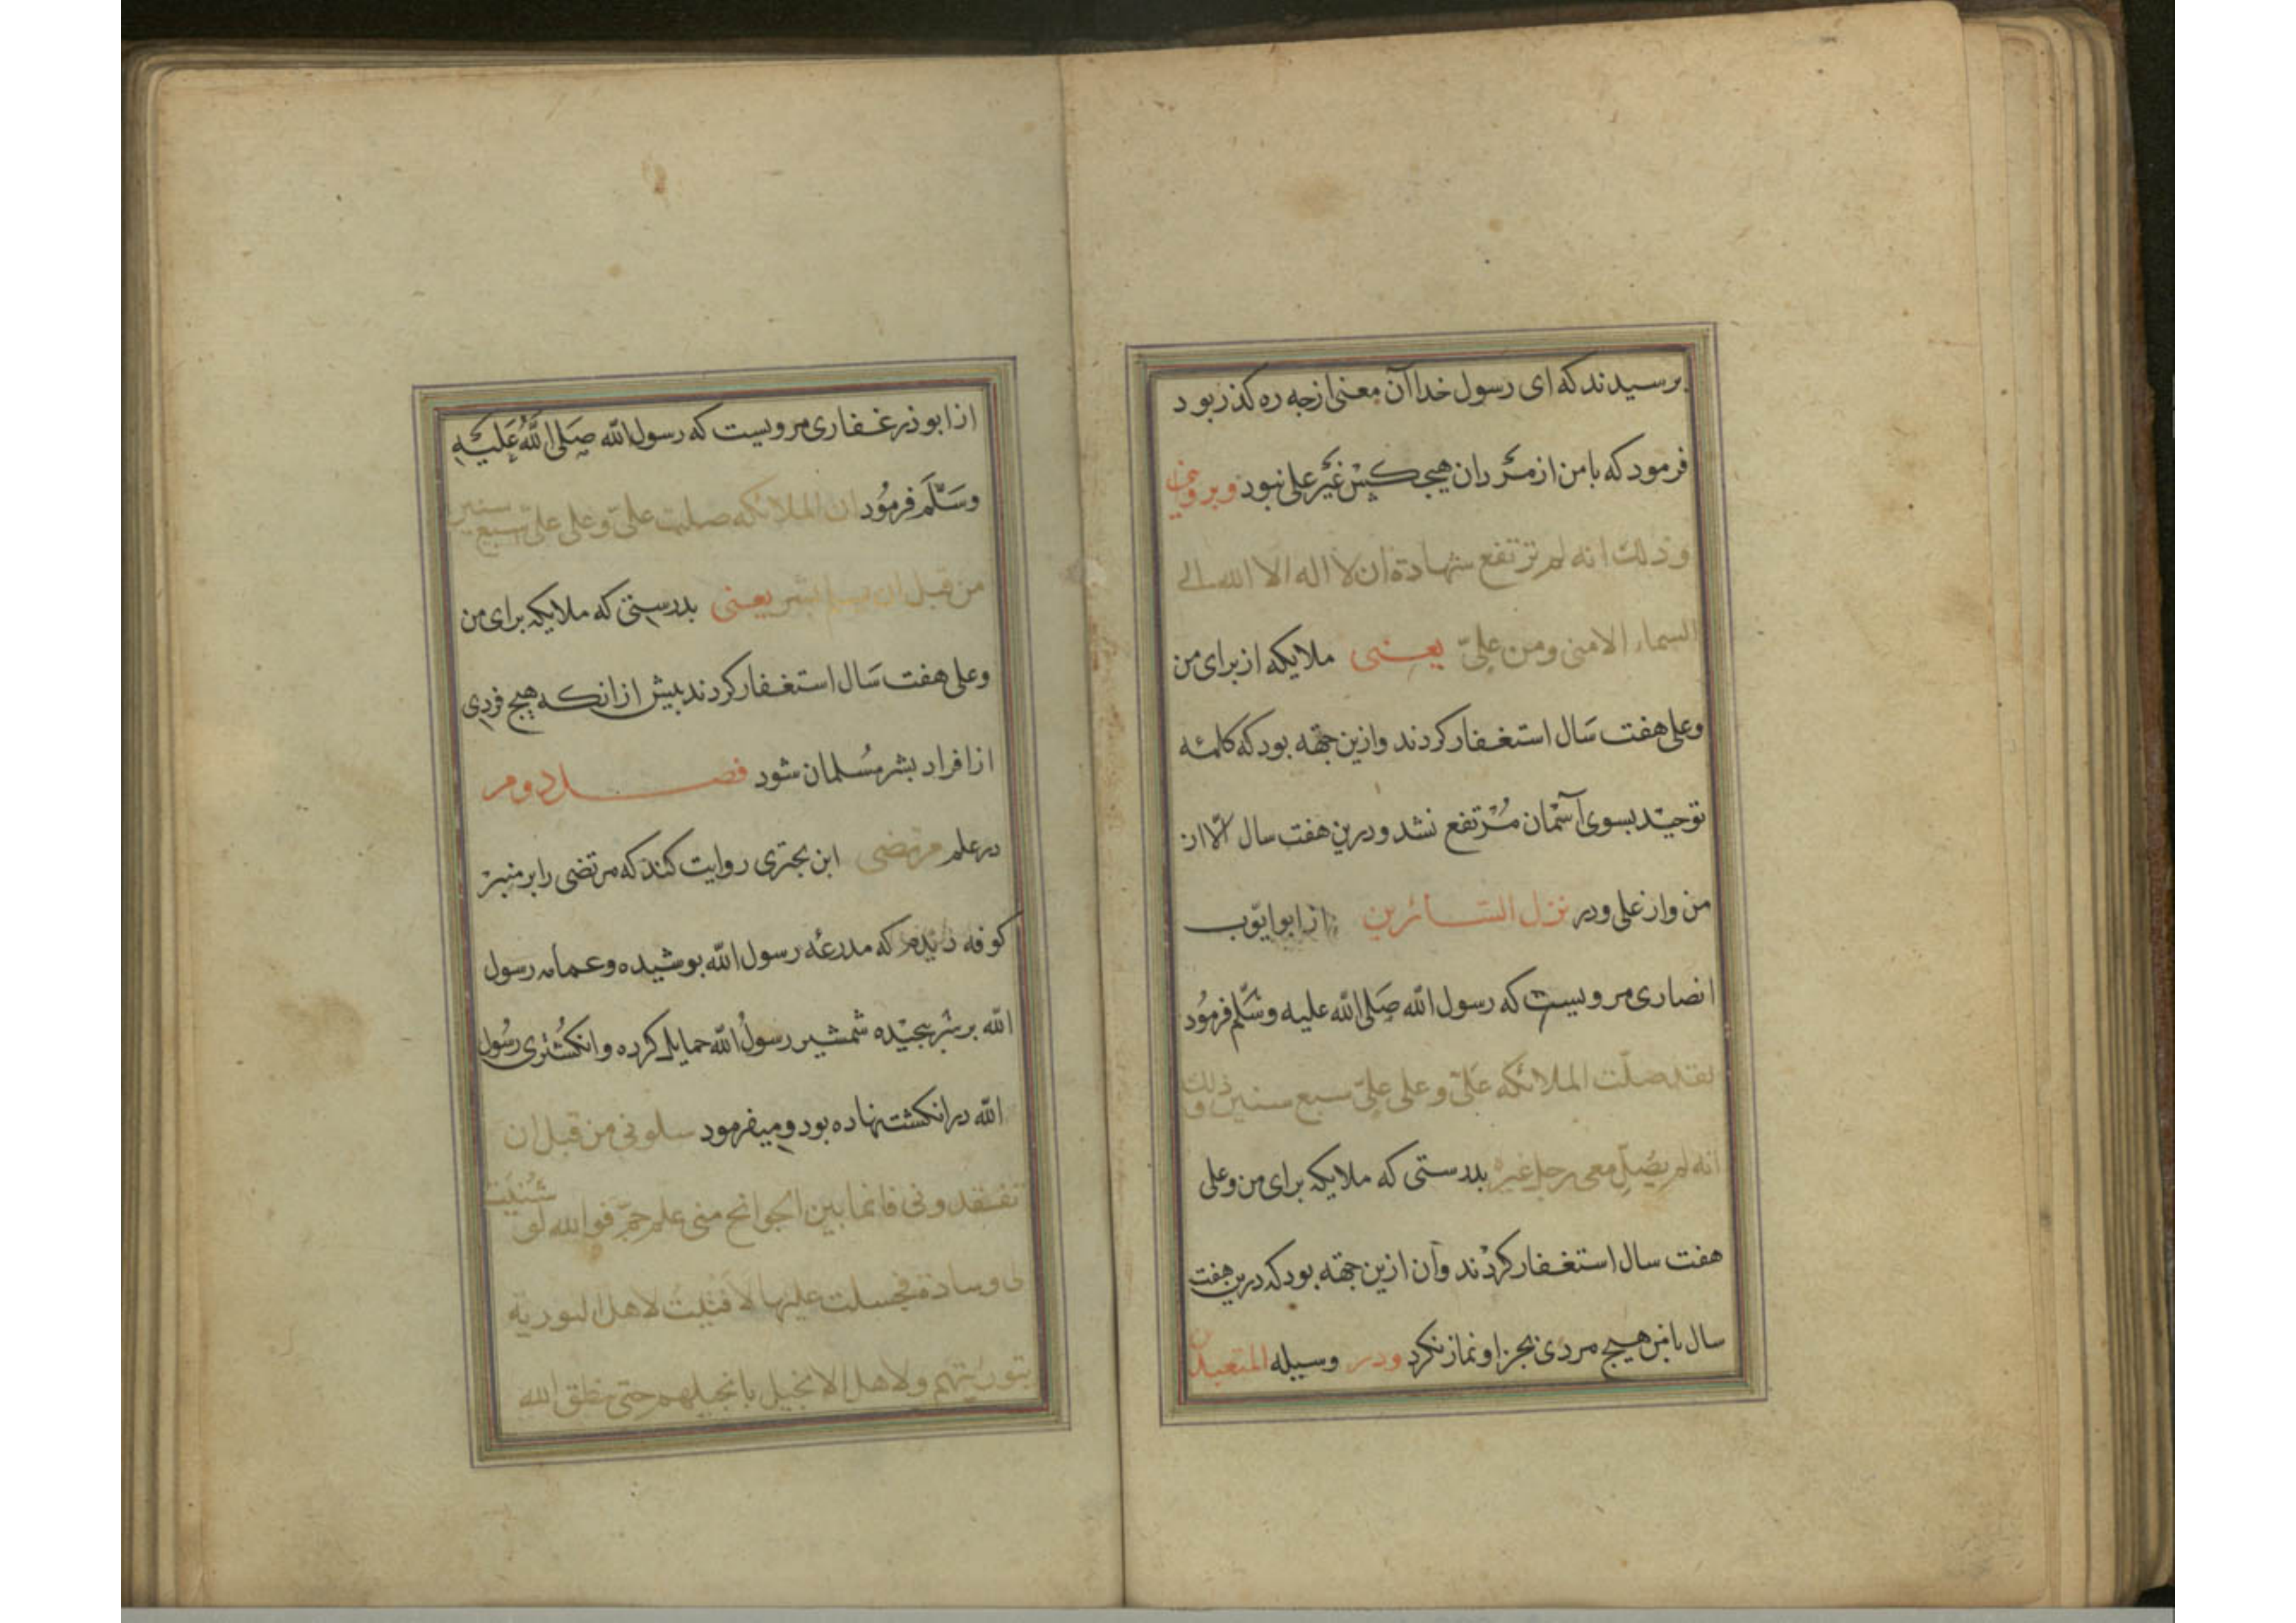 برسیدند که ای رسول خدا آن معنی از جه ره کذر بود
فرمود که با من از مردان هیچ کس غیر علی نبود و بروجهی
وذلك انه لم ترتفع شهادة ان لا اله الا الله الى
السماء الا منی ومن علیّ یعنی ملایکه از برای من
وعلی هفت سال استغفار کردند وازین جهة بود که کلمه
توحید بسوی آسمان مرتفع نشد ودرین هفت سال الا از
من واز علی ودر نزل السائرین از ابو ایّوب
انصاری مرویست که رسول الله صلی الله علیه وسلّم فرمود
لقد صلّت الملائکه علیّ وعلی علیّ سبع سنین وذلك
انه لم یصلّ معی رجل غیره بدرستی که ملایکه برای من وعلی
هفت سال استغفار کردند وآن ازین جهة بود که درین هفت
سال با من هیچ مردی بجز او نماز نکرد ودر وسیله المتعبدین
از ابوذر غفاری مرویست که رسول الله صلی الله علیه
وسلّم فرمود ان الملائکه صلت علیّ وعلی علیّ سبع سنین
من قبل ان یسلم بشر یعنی بدرستی که ملایکه برای من
وعلی هفت سال استغفار کردند بیش از انکه هیچ فردی
از افراد بشر مسلمان شود فصل دوم
در علم مرتضی ابن بختری روایت کند که مرتضی را بر منبر
کوفه دیدم که مدرعه رسول الله بوشیده وعمامه رسول
الله بر سر بیجیده شمشیر رسول الله حمایل کرده وانکشتری رسول
الله در انکشت نهاده بود ومیفرمود سلونی من قبل ان
تفقدونی فانما بین الجوانح منی علم جمّ فوالله لو ثنیت
لی وسادة فجلست علیها لافتیت لاهل التوریة
بتوریتهم ولاهل الانجیل بانجیلهم حتی ینطق الله